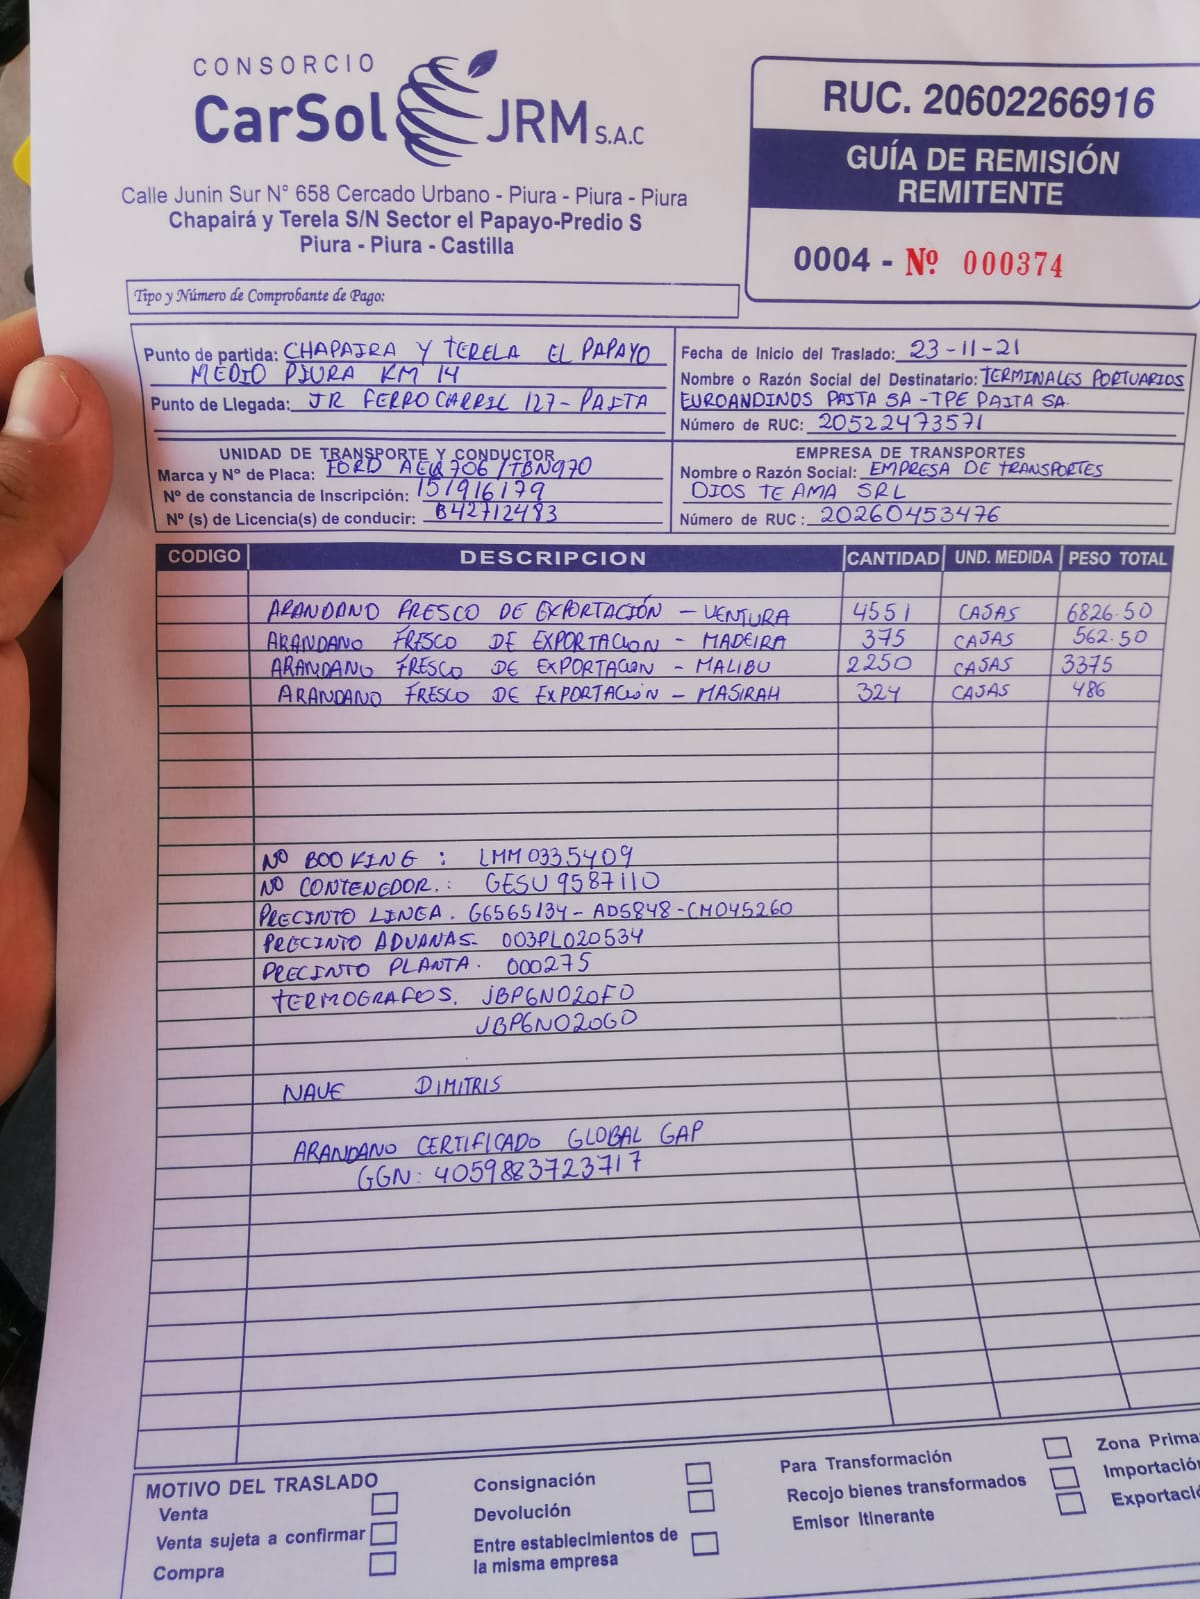 CONSORCIO
CarSol JRM S.A.C
Calle Junin Sur N° 658 Cercado Urbano - Piura - Piura - Piura
Chapairá y Terela S/N Sector el Papayo-Predio S
Piura - Piura - Castilla
RUC. 20602266916
GUÍA DE REMISIÓN
REMITENTE
0004 - Nº 000374
Tipo y Número de Comprobante de Pago:
Punto de partida: CHAPAIRA Y TERELA EL PAPAYO
MEDIO PIURA KM 14
Punto de Llegada: JR FERROCARRIL 127 - PAITA
Fecha de Inicio del Traslado: 23-11-21
Nombre o Razón Social del Destinatario: TERMINALES PORTUARIOS
EUROANDINOS PAITA SA - TPE PAITA SA.
Número de RUC: 20522473571
UNIDAD DE TRANSPORTE Y CONDUCTOR
Marca y Nº de Placa: FORD AEQ706/TBN970
Nº de constancia de Inscripción: 151916179
Nº (s) de Licencia(s) de conducir: B42712483
EMPRESA DE TRANSPORTES
Nombre o Razón Social: EMPRESA DE TRANSPORTES
DIOS TE AMA SRL
Número de RUC: 20260453476
CODIGO DESCRIPCION CANTIDAD UND. MEDIDA PESO TOTAL
ARANDANO FRESCO DE EXPORTACIÓN - VENTURA 4551 CAJAS 6826.50
ARANDANO FRESCO DE EXPORTACION - MADEIRA 375 CAJAS 562.50
ARANDANO FRESCO DE EXPORTACION - MALIBU 2250 CAJAS 3375
ARANDANO FRESCO DE EXPORTACION - MASIRAH 324 CAJAS 486
NO BOOKING : LMM0335409
NO CONTENEDOR. : GESU 9587110
PRECINTO LINEA. G6565134 - AD5848 - CM045260
PRECINTO ADUANAS- 003PL020534
PRECINTO PLANTA. 000275
TERMOGRAFOS. JBP6N020F0
JBP6N020G0
NAVE DIMITRIS
ARANDANO CERTIFICADO GLOBAL GAP
GGN: 4059883723717
MOTIVO DEL TRASLADO
Venta
Venta sujeta a confirmar
Compra
Consignación
Devolución
Entre establecimientos de
la misma empresa
Para Transformación
Recojo bienes transformados
Emisor Itinerante
Zona Prima
Importació
Exportaci